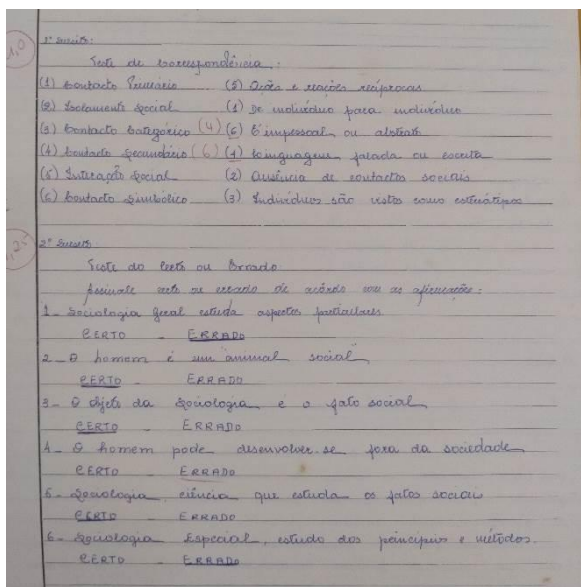 1,0
1º Quesito:
Teste de Correspondência:
(1) Contacto Primário (5) Ação e reações recíprocas
(2) Isolamento Social (1) De indivíduo para indivíduo
(3) Contacto Categórico (4) (6) É impessoal ou abstrato
(4) Contacto Secundário (6) (4) Linguagem falada ou escrita
(5) Interação Social (2) Ausência de contactos sociais
(6) Contacto Simbólico (3) Indivíduos são vistos como esteriótipos
2º Quesito:
Teste do Certo ou Errado
Assinale certo ou errado de acôrdo com as afirmações:
1- Sociologia Geral estuda aspectos particulares
CERTO - ERRADO
2- O homem é um animal social
CERTO - ERRADO
3- O objeto da Sociologia é o fato social
CERTO - ERRADO
4- O homem pode desenvolver-se fora da sociedade
CERTO - ERRADO
5- Sociologia, ciência que estuda os fatos sociais
CERTO - ERRADO
6- Sociologia Especial, estudo dos princípios e métodos.
CERTO - ERRADO